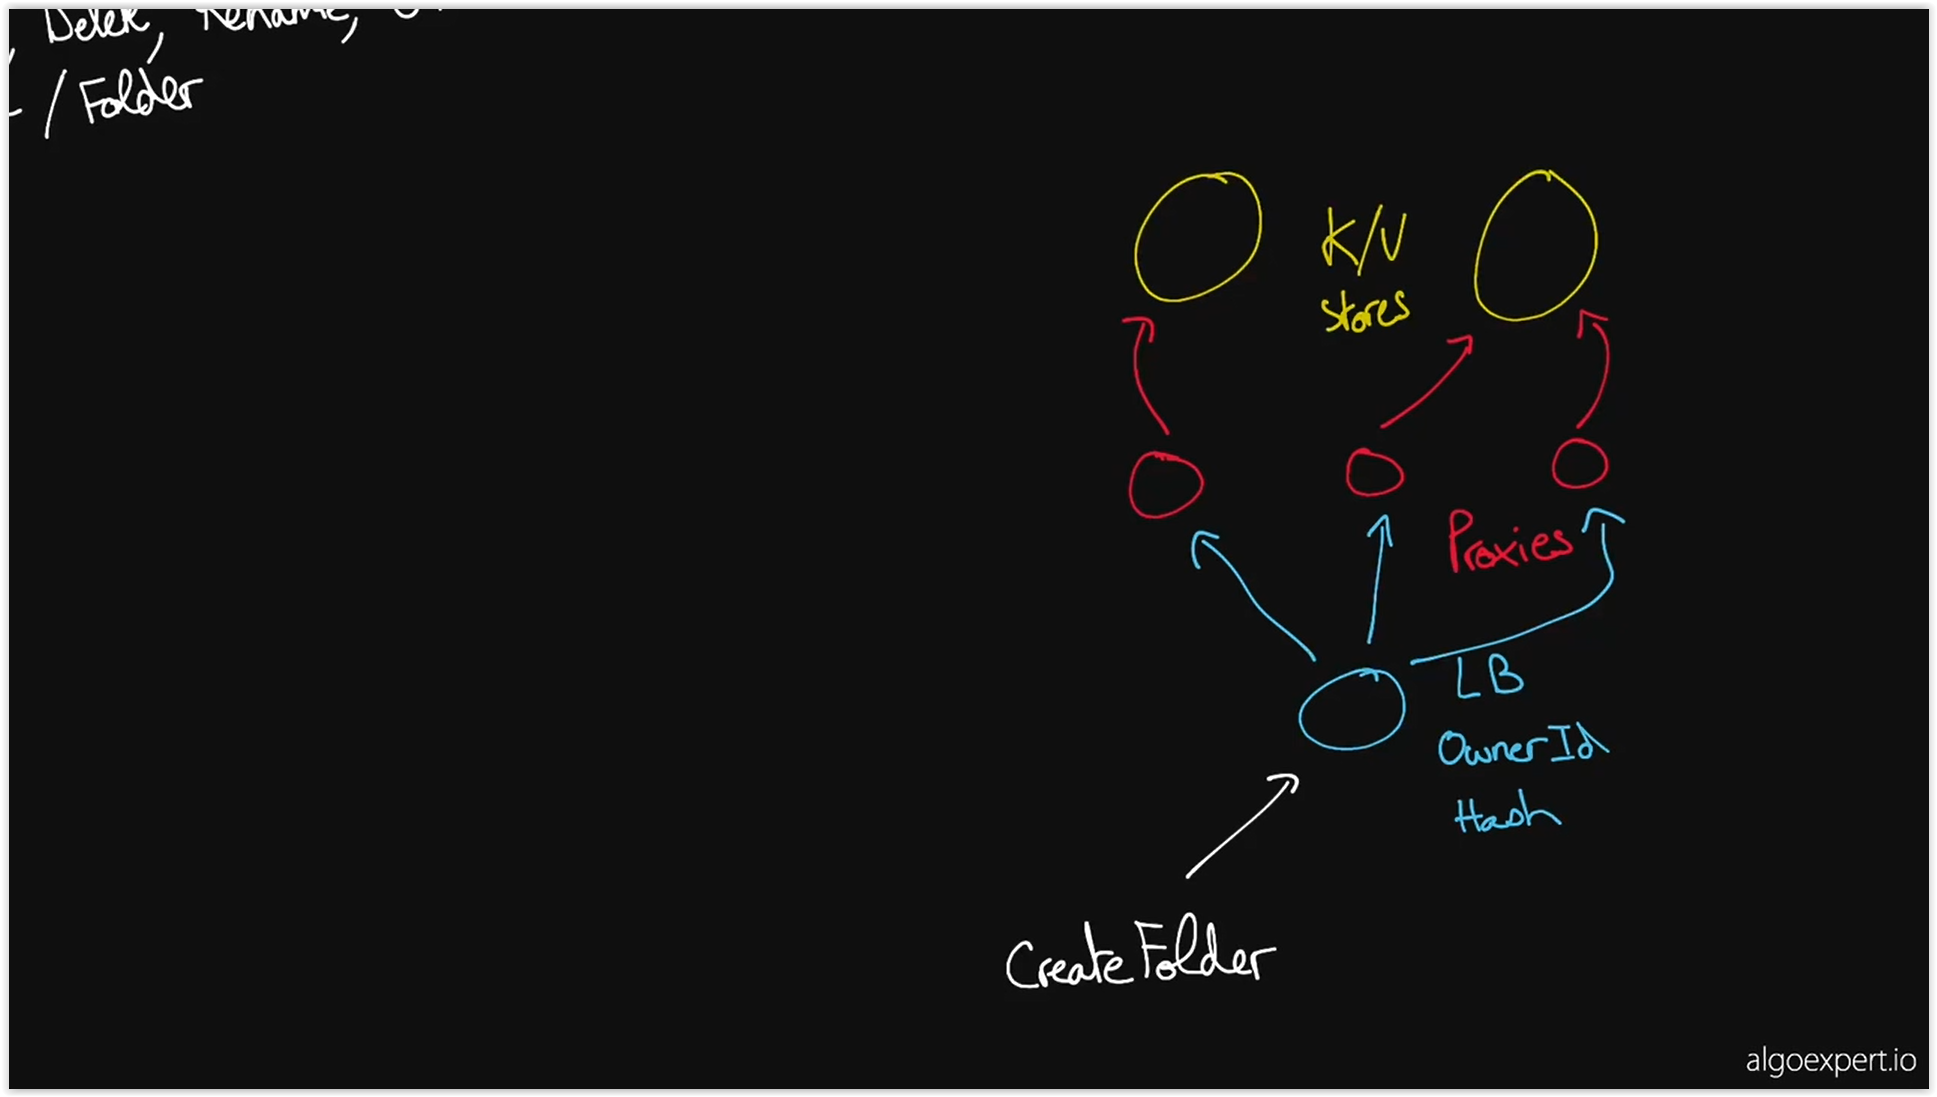 , Delete, Rename,
/Folder
K/V
stores
Proxies
LB
OwnerId
Hash
CreateFolder
algoexpert.io